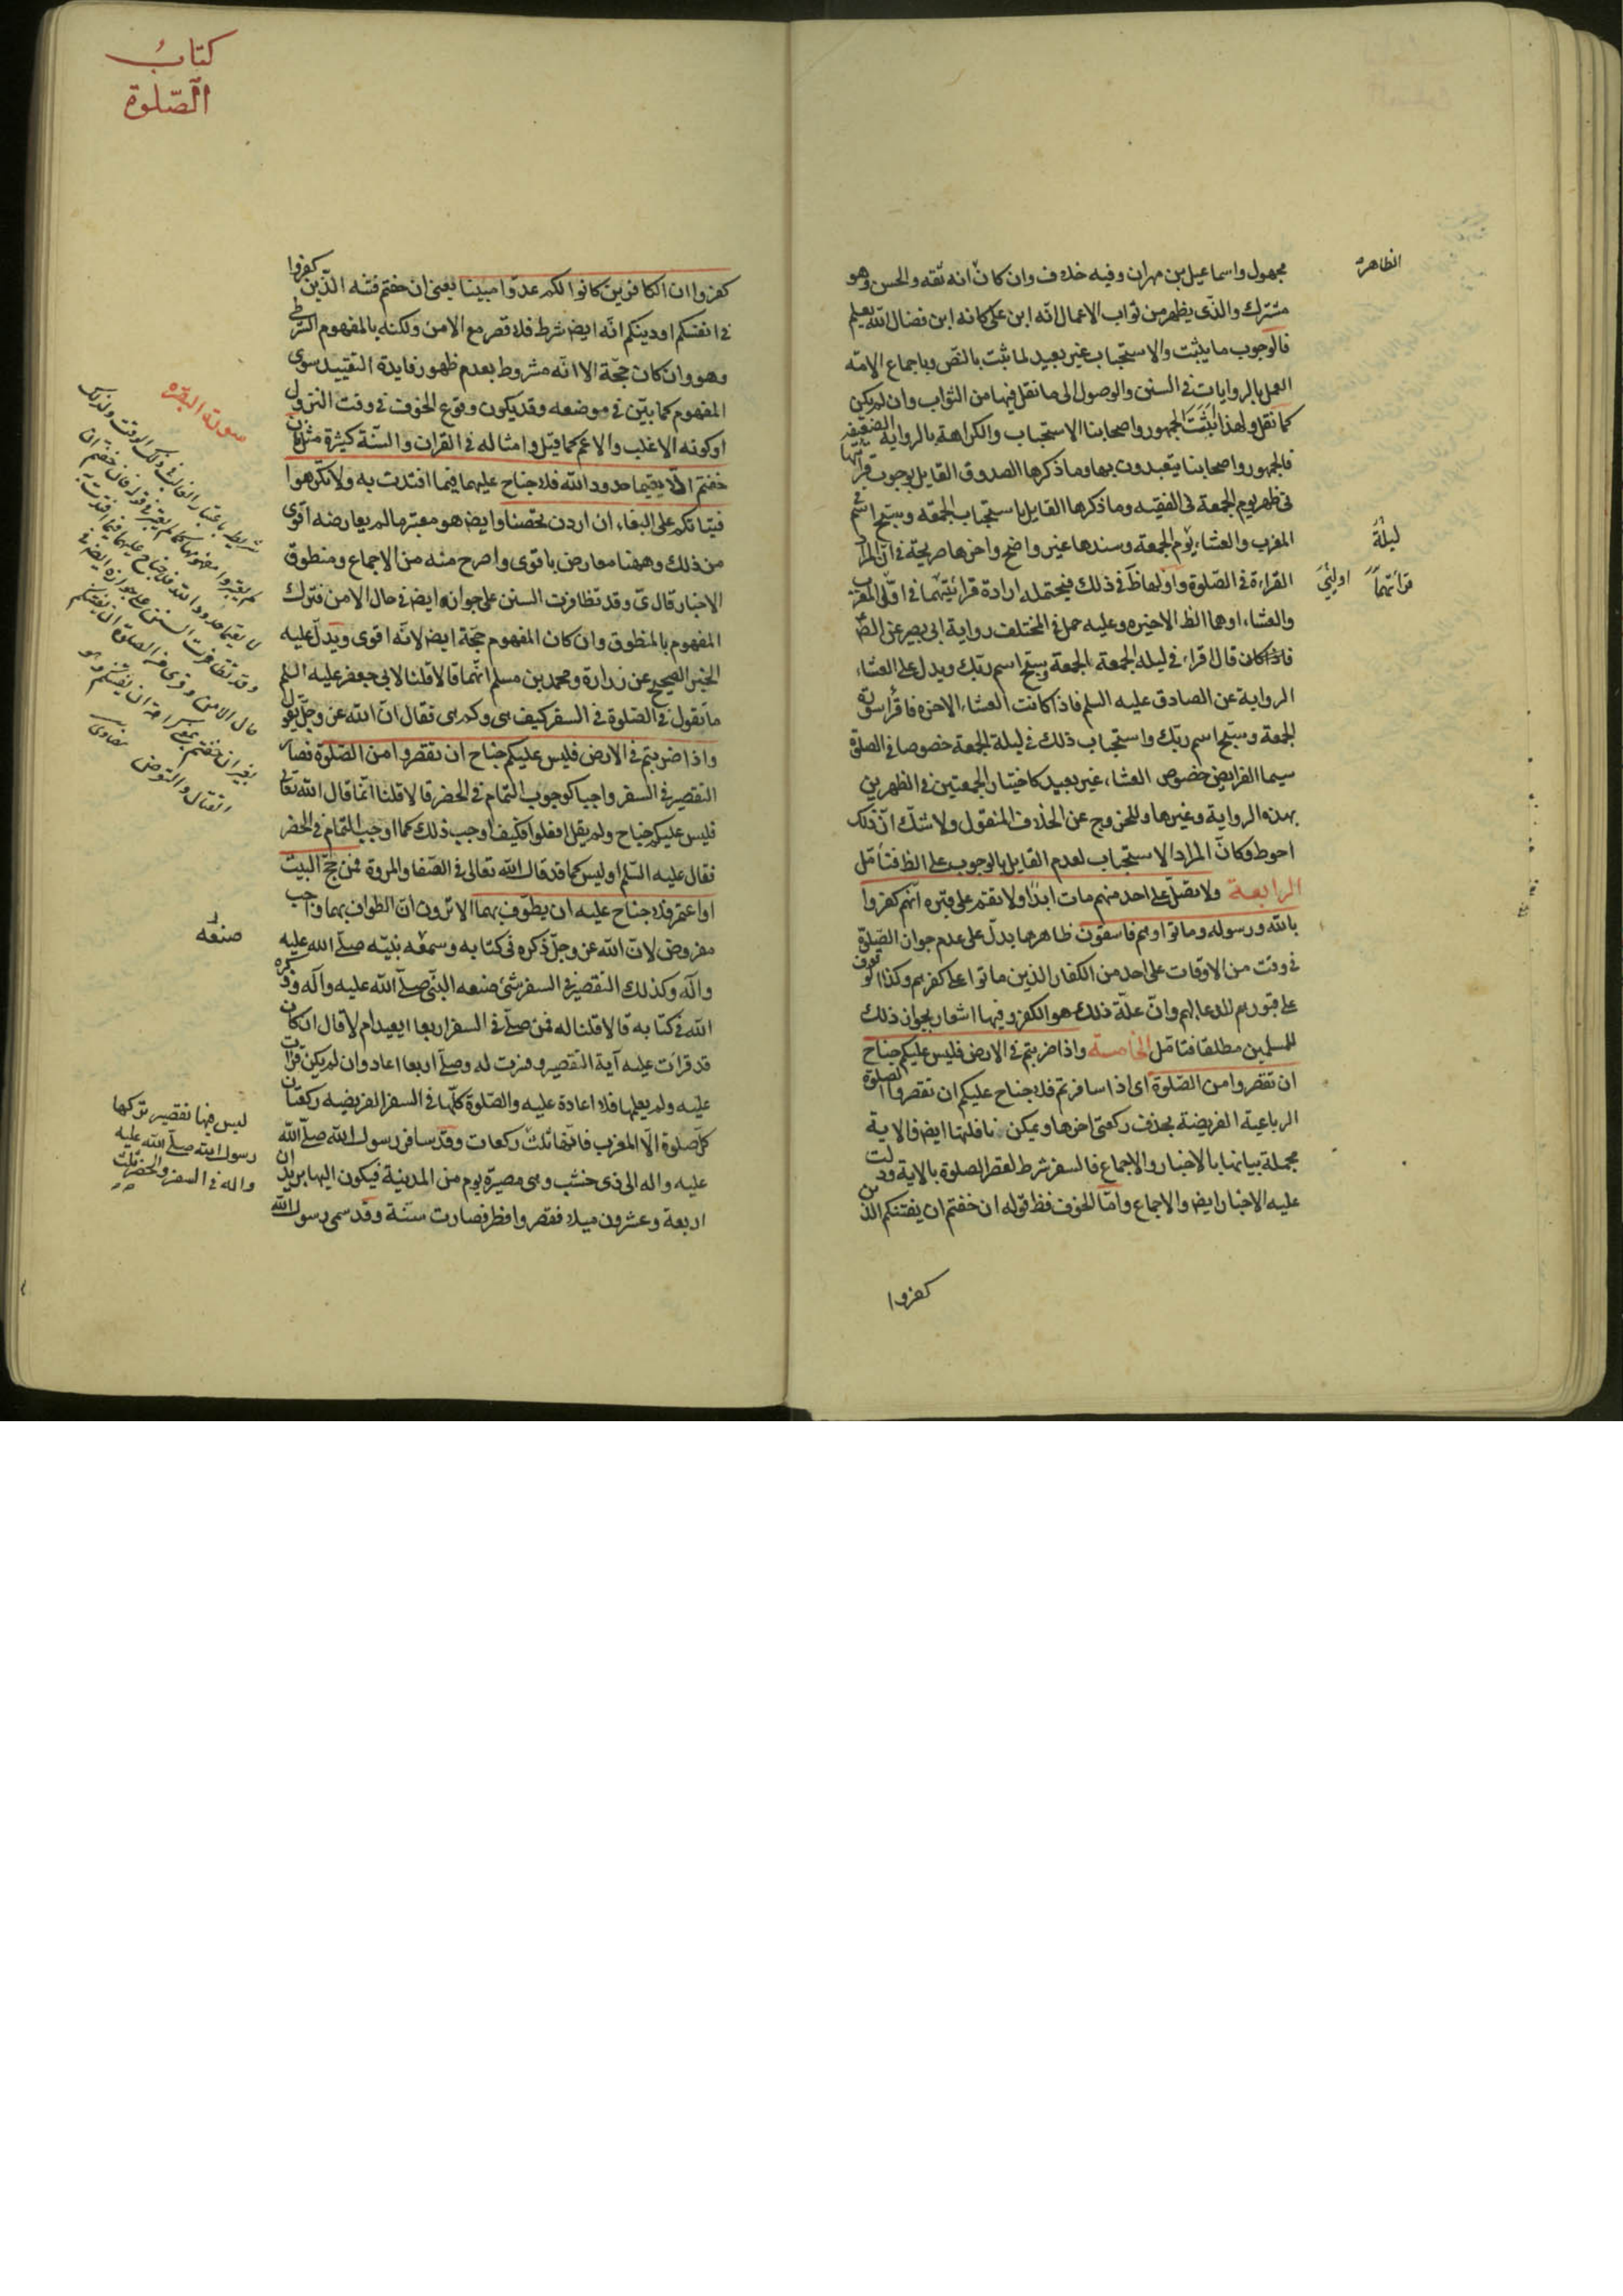 مجهول واسماعيل بن مهران وفيه خلاف وان كان انه ثقه والحسن وهو
الظاهرة
مشترك والذى يظهر من ثواب الاعمال انّه ابن على كانه ابن فضال الله يعلم
فالوجوب ما يثبت والاستحباب غير بعيد لما ثبت بالنّص وباجماع الامّه
العمل بالروايات فى السنن والوصول الى ما نقل فيها من الثواب وان لم يكن
كما نقل ولهذا اثبتت الجمهور واصحابنا الاستحباب والكراهة بالرواية الضعيفه
فالجمهور واصحابنا يتعبدون بها وما ذكرها الصدوق القايل بوجوب قرائتها
فى ظهر يوم الجمعة فى الفقيه وما ذكرها القايل باستحباب الجمعة وسبّح اسم فى
المغرب والعشاء يوم الجمعة وسندها غير واضح واخرها صريحة فى ان المراد
ليلة
القراءة فى الصّلوة واولها ظ فى ذلك فيحتمل ارادة قرائتهما فى اولى المغرب
قرائتهما اوليتى
والعشاء اوهما الظ الاخيره وعليه حمل فى المختلف رواية ابى بصير عن الصّ
فاذا كان قال اقراء فى ليلة الجمعة الجمعة وسبّح اسم ربّك ويدل على العشاء
الرواية عن الصادق عليه السلم فاذا كانت العشاء الاخرة فاقرأ سورة
الجمعة وسبّح اسم ربّك واستحباب ذلك فى ليلة الجمعة خصوصا فى الصلوة
سيما الفرايض خصوص العشاء غير بعيد كاختيار الجمعتين فى الظهرين
بهذه الرواية وغيرها وللخروج عن الخلاف المنقول ولا شك انّ ذلك
احوط وكانّ المراد الاستحباب لعدم القايل بالوجوب على الظ فتأمّل
الرابعة ولا تصلّ على احد منهم مات ابدًا ولا تقم على قبره انّهم كفروا
بالله ورسوله وماتوا وهم فاسقون ظاهرها يدلّ على عدم جواز الصّلوة
فى وقت من الاوقات على احد من الكفار الذين ماتوا على كفرهم وكذا الوقوف
على قبورهم للدعا لهم وانّ علّة ذلك هو الكفر وفيها اشعار بجواز ذلك
للمسلمين مطلقا فتامّل الخامسة واذا ضربتم فى الارض فليس عليكم جناح
ان تقصروا من الصّلوة اى اذا سافرتم فلا جناح عليكم ان تقصروا الصلوة
الرباعية الفريضة بحذف ركعتى اخرها ويمكن نافلتها ايض فالاية
مجملة بيانها بالاخبار والاجماع فالسفر شرط لقصر الصلوة بالاية ودلت
عليه الاخبار ايض والاجماع وامّا الخوف فظ قوله ان خفتم ان يفتنكم الذين
كفروا
كتابُ
الصّلوة
كفروا ان الكافرين كانوا لكم عدوّا مبينا يعنى ان خفتم فتنه الّذين كفروا
فى انفسكم او دينكم انّه ايض شرط فلا قصر مع الامن ولكنه بالمفهوم الشرطى
وهو وان كان حجّة الا انّه مشروط بعدم ظهور فايدة التقييد سوى
المفهوم كما بيّن فى موضعه وقد يكون وقوع الخوف فى وقت النزول
او كونه الاغلب والاعم كما قيل وامثاله فى القران والسنّة كثيرة مثل فان
خفتم الّا يقيما حدود الله فلا جناح عليهما فيما افتدت به ولا تكرهوا
فتياتكم على البغاء ان اردن تحصنا وايض هو معتبر ما لم يعارضه اقوى
من ذلك وههنا معارض باقوى واصرح منه من الاجماع ومنطوق
الاخبار قال ى وقد تظافرت السنن على جوازه ايض فى حال الامن فترك
المفهوم بالمنطوق وان كان المفهوم حجّة ايض لانّه اقوى ويدلّ عليه
الخبر الصحيح عن زرارة ومحمد بن مسلم انّهما قالا قلنا لابى جعفر عليه السلم
ما تقول فى الصّلوة فى السفر كيف هى وكم هى فقال انّ الله عز وجلّ يقول
واذا ضربتم فى الارض فليس عليكم جناح ان تقصروا من الصّلوة فصار
التقصير فى السفر واجبا كوجوب التّمام فى الحضر قالا قلنا انّما قال الله تعالى
فليس عليكم جناح ولم يقل افعلوا فكيف اوجب ذلك كما اوجب التمام فى الحضر
فقال عليه السّلم اوليس كما قد قال الله تعالى فى الصّفا والمروة فمن حجّ البيت
او اعتمر فلا جناح عليه ان يطّوف بهما الا ترون انّ الطواف بهما واجب
مفروض لانّ الله عز وجلّ ذكره فى كتابه وسمعه نبيّه صلّى الله عليه
صنعه
وآله وكذلك التقصير فى السفر شئ صنعه النبّى صلّى الله عليه وآله وذكره
الله فى كتابه قالا قلنا له فمن صلّى فى السفر اربعا ايعيد ام لا قال ان كان
قد قرات عليه آية التقصير وفسرت له وصلّى اربعا اعاد وان لم يكن قرات
عليه ولم يعلمها فلا اعادة عليه والصّلوة كلّها فى السفر الفريضه ركعتان
كلّ صلوة الّا المغرب فانّها ثلث ركعات وقد سافر رسول الله صلّى الله
ليس فيها تقصير تركها
رسول الله صلّى الله عليه
واله فى السفر والحضر ثلث
عليه واله الى ذى خشب وهى مصيرة يوم من المدينة فيكون اليها بريدان
اربعة وعشرون ميلا فقصر وافطر فصارت سنّة وقد سمى رسول الله
سورة البقره
شريطه باعتبار الغالب فى ذلك الوقت ولذلك
لم يعتبروا مفهومها كما لم يعتبر فى قوله فان خفتم ان
لا يقيما حدود الله فلا جناح عليهما فيما افتدت به
وقد تظافرت السنن على جوازه ايض فى
حال الامن وقرئ من الصلوة ان يفتنكم
بغير ان خفتم بمعنى كراهة ان يفتنكم وهو
القتال والتعرض بيضاوى